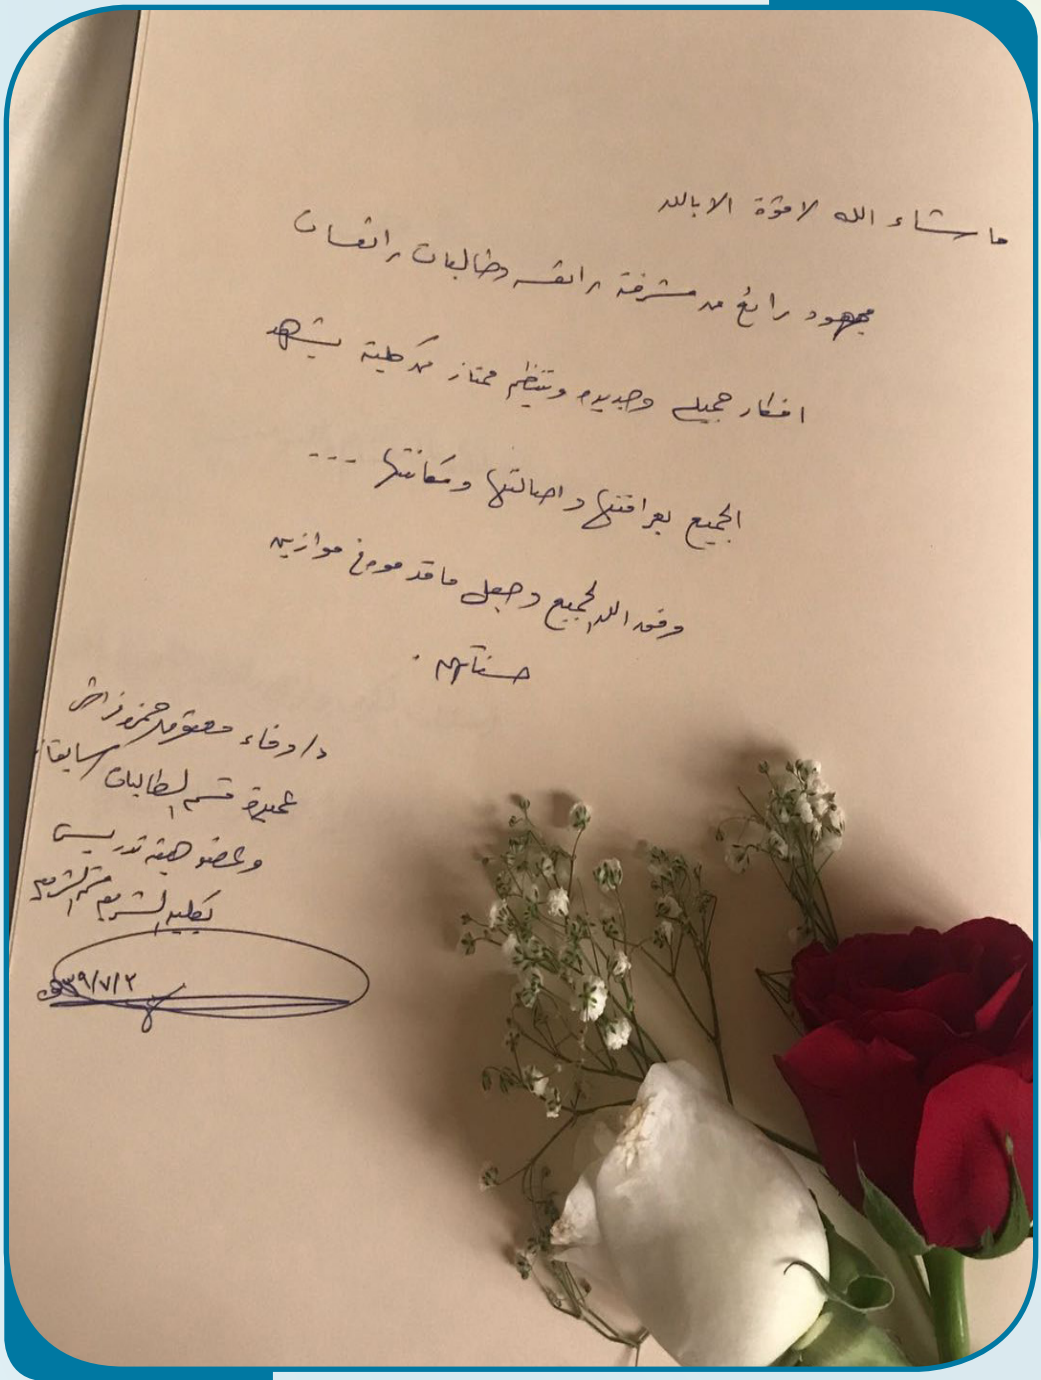 ما شاء الله لا قوة الا بالله
مجهود رائع من مشرفة رائعه وطالبات رائعات
افكار جميله وجديده وتنظيم ممتاز من كلية يشهد
الجميع بعراقتها واصالتها ومكانتها ---
وفق الله الجميع وجعل ما قدموه في موازين
حسناتهم .
د/ وفاء
عميدة قسم الطالبات سابقا
وعضو هيئه تدريس
بكليه الشريعه قسم الشريعه
٣٩/٧/٢